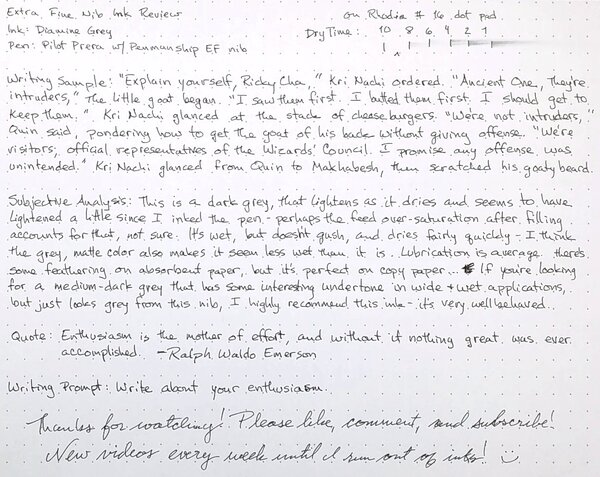 Extra Fine Nib Ink Review
on Rhodia #16 dot pad
Ink: Diamine Grey
Dry Time: 10 8 6 4 2 1
Pen: Pilot Prera w/ Penmanship EF nib
Writing Sample: "Explain yourself, Ricky Cha," Kri Nachi ordered. "Ancient One, they're
intruders," The little goat began. "I saw them first. I butted them first. I should get to
keep them." Kri Nachi glanced at the stack of cheeseburgers. "We're not intruders,"
Quin said, pondering how to get the goat of his back without giving offense. "We're
visitors, official representatives of the Wizards' Council. I promise any offense was
unintended." Kri Nachi glanced from Quin to Makhabesh, then scratched his goaty beard.
Subjective Analysis: This is a dark grey, that lightens as it dries and seems to have
lightened a little since I inked the pen - perhaps the feed over-saturation after filling
accounts for that, not sure. It's wet, but doesn't gush, and dries fairly quickly - I think
the grey, matte color also makes it seem less wet than it is. Lubrication is average. there's
some feathering on absorbent paper, but it's perfect on copy paper... If you're looking
for a medium-dark grey that has some interesting undertone in wide + wet applications,
but just looks grey from this nib, I highly recommend this ink - it's very well behaved..
Quote: Enthusiasm is the mother of effort, and without it nothing great was ever
accomplished. - Ralph Waldo Emerson
Writing Prompt: Write about your enthusiasm.
Thanks for watching! Please like, comment, and subscribe!
New videos every week until I run out of inks! :)